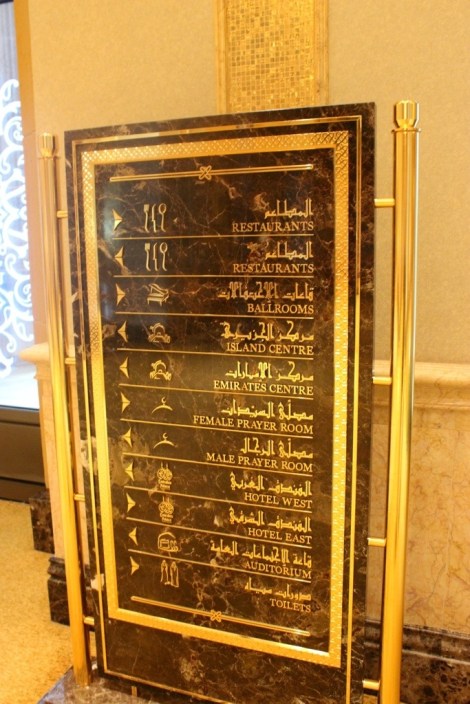 المطاعم
RESTAURANTS
المطاعم
RESTAURANTS
قاعات الاحتفالات
BALLROOMS
مركز الجزيرة
ISLAND CENTRE
مركز الامارات
EMIRATES CENTRE
مصلى السيدات
FEMALE PRAYER ROOM
مصلى الرجال
MALE PRAYER ROOM
الفندق الغربي
HOTEL WEST
الفندق الشرقي
HOTEL EAST
قاعة الاجتماعات العامة
AUDITORIUM
دورات مياه
TOILETS